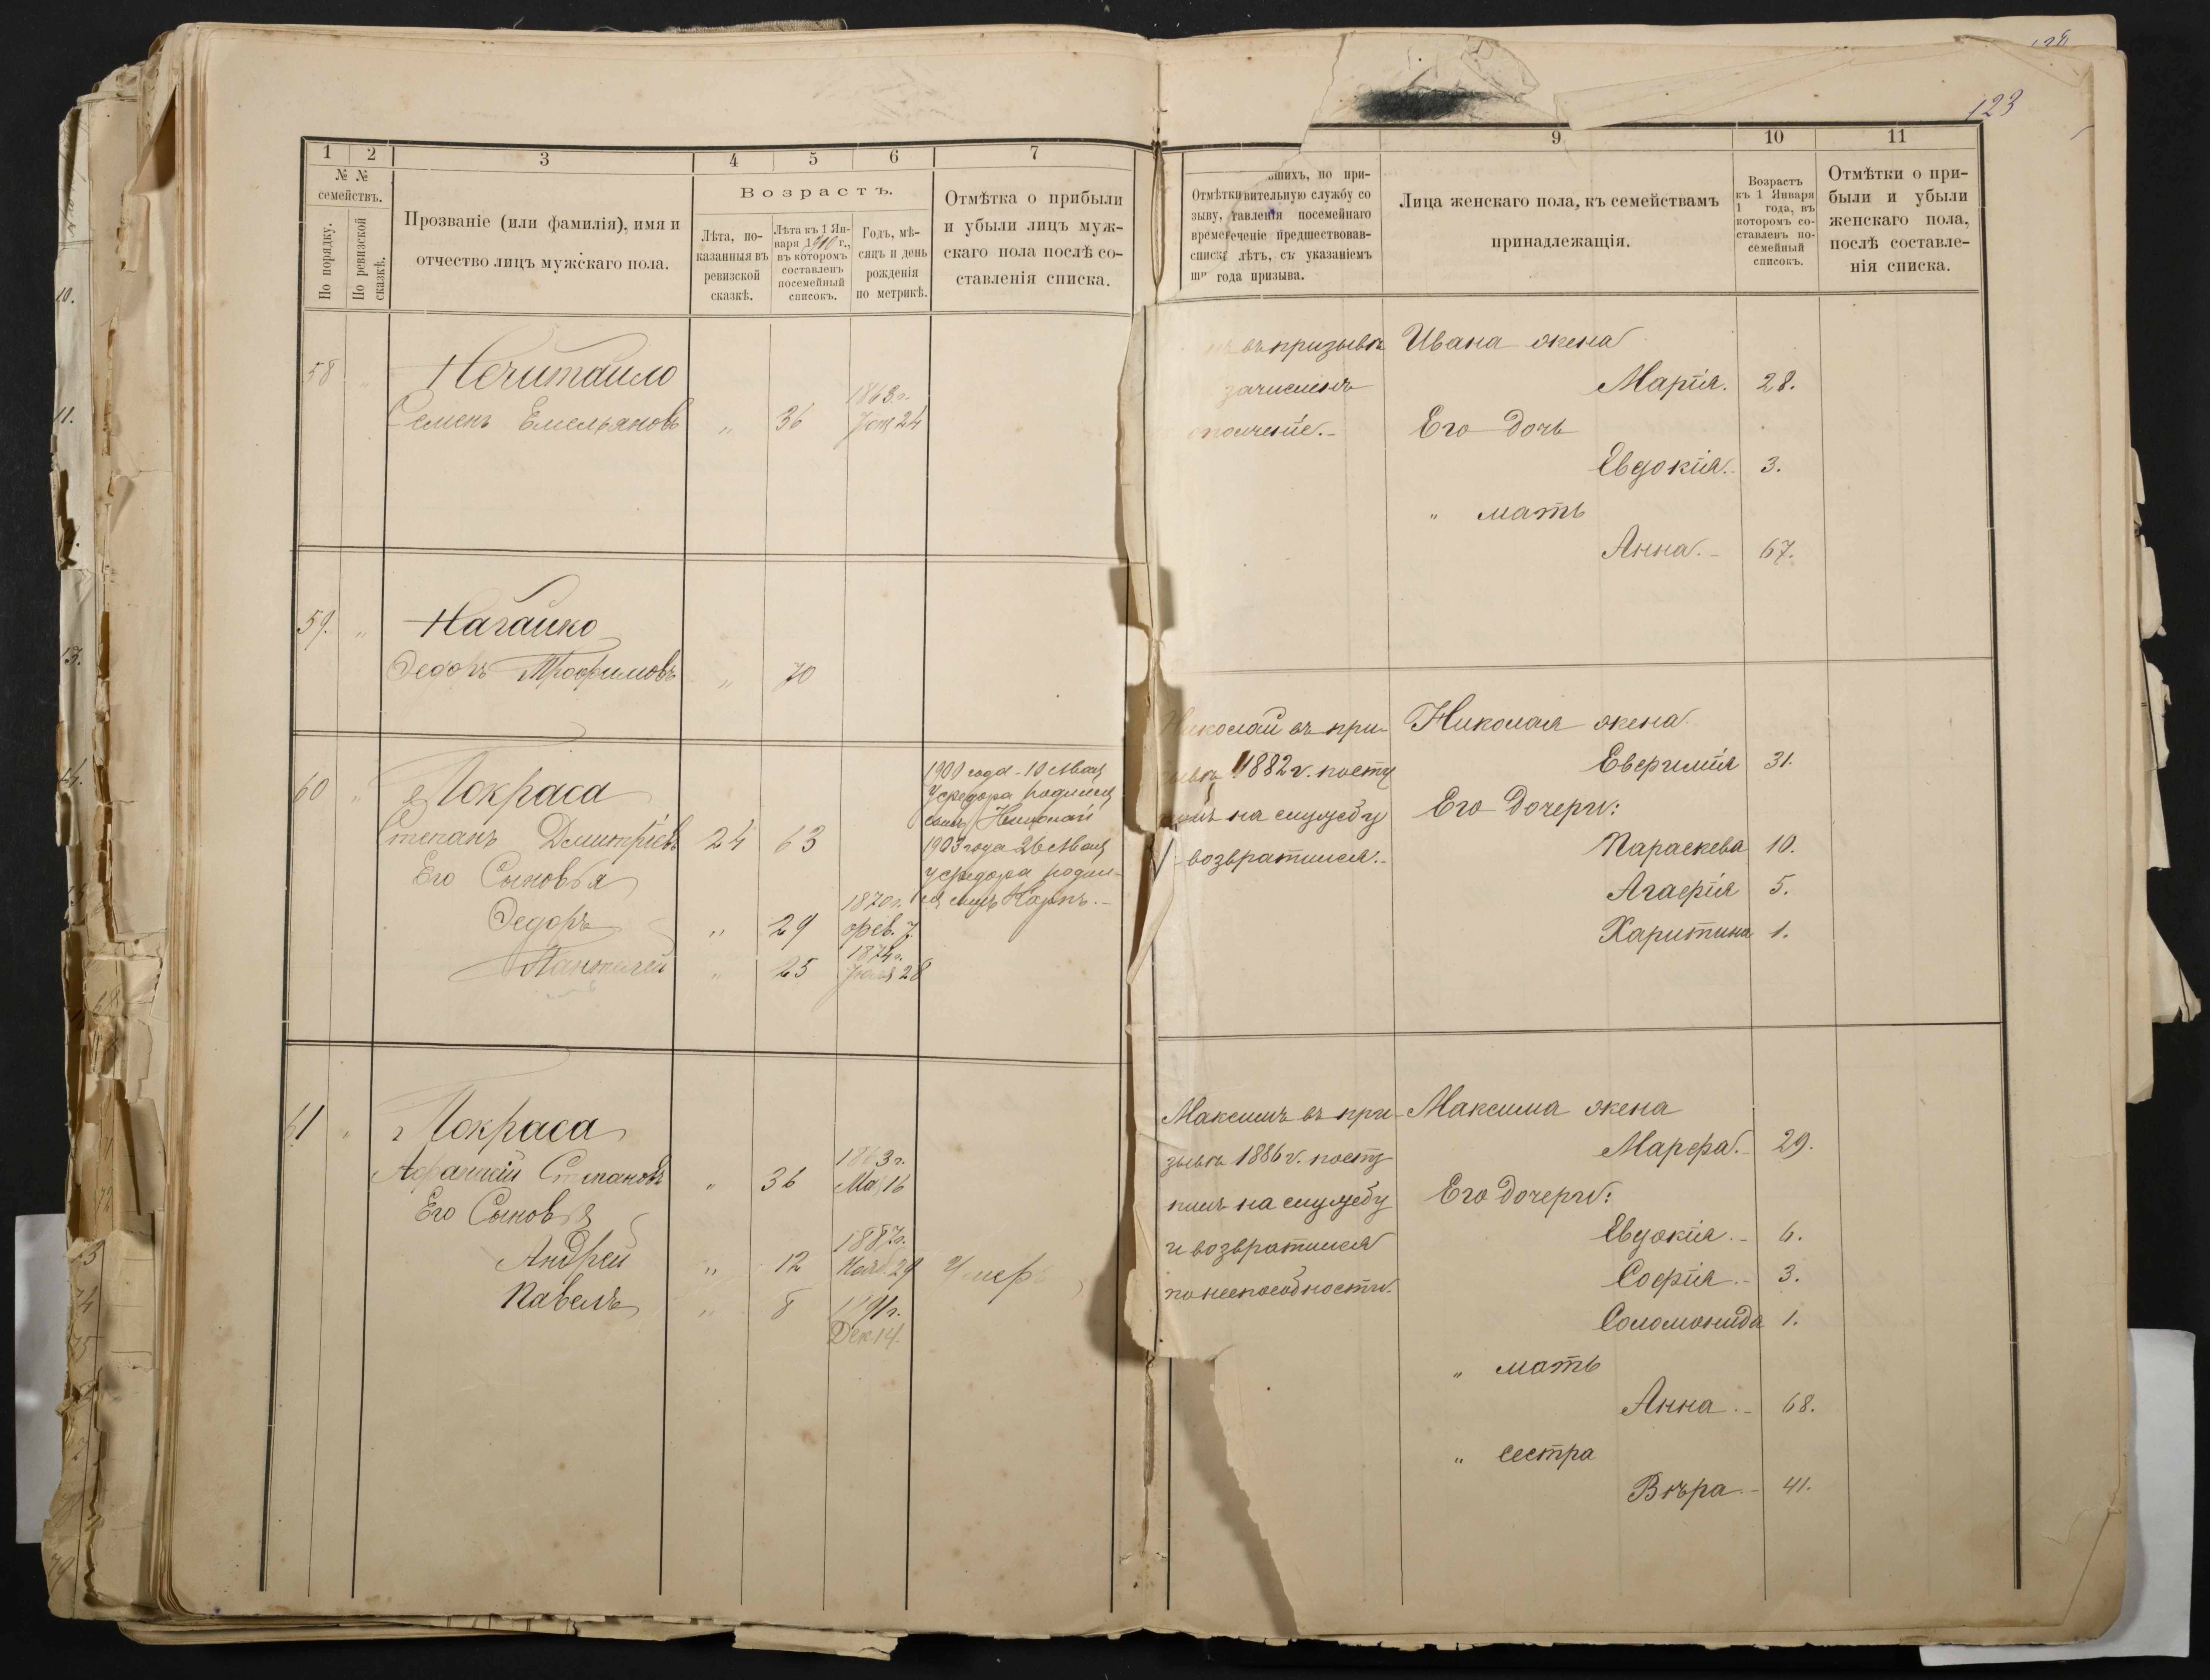 1 2 3 4 5 6 7
№ №
семействъ.
По порядку.
По ревизской
сказкѣ.
Прозваніе (или фамилія), имя и
отчество лицъ мужскаго пола.
Возрастъ.
Лѣта, по-
казанныя въ
ревизской
сказкѣ.
Лѣта къ 1 Ян-
варя г.,
въ которомъ
составленъ
посемейный
списокъ.
Годъ, мѣ-
сяцъ и день
рожденія
по метрикѣ.
Отмѣтка о прибыли
и убыли лицъ муж-
скаго пола послѣ со-
ставленія списка.
58 " Нечитайло
1863 г.
Семенъ Емельяновъ " 36 24
59. " Нагайко
Федоръ Трофимовъ " 70
60 " Покраса
Степанъ Дмитріевъ 24 63
Его Сыновья
1870 г.
Федоръ " 29 фев. 7.
1874 г.
Пантелей " 25 28
1900 года 10 Мая
у Федора родился
сынъ Николай
1903 года 26 Мая
у Федора родил-
ся сынъ Карпъ.
61 " Покраса
1863 г.
Афанасій Степановъ " 36 Мая 16
Его Сыновья
1887 г.
Андрей " 12 Нояб. 29 Умеръ
Павелъ " 8 1891 г.
Дек 14.
123
9 10 11
по при-
Отмѣтки вительную службу со
зыву, тавленія посемейнаго
време теченіе предшествовав-
списк лѣтъ, съ указаніемъ
ш года призыва.
Лица женскаго пола, къ семействамъ
принадлежащія.
Возрастъ
къ 1 Января
1 года, въ
которомъ со-
ставленъ по-
семейный
списокъ.
Отмѣтки о при-
были и убыли
женскаго пола,
послѣ составле-
нія списка.
въ призывѣ Ивана жена
зачисленъ Марія. 28.
ополченіе. Его дочь
Евдокія. 3.
" мать
Анна. 67.
Николай въ при- Николая жена
зывѣ 1882 г. посту Евфимія 31.
пилъ на службу Его дочери:
возвратился. Параскева 10.
Агафія 5.
Харитина 1.
Максимъ въ при- Максима жена
зывѣ 1886 г. посту Марфа. 29.
пилъ на службу Его дочери:
и возвратился Евдокія. 6.
по неспособности. Софія. 3.
Соломонида 1.
" мать
Анна. 68.
" сестра
Вѣра. 41.